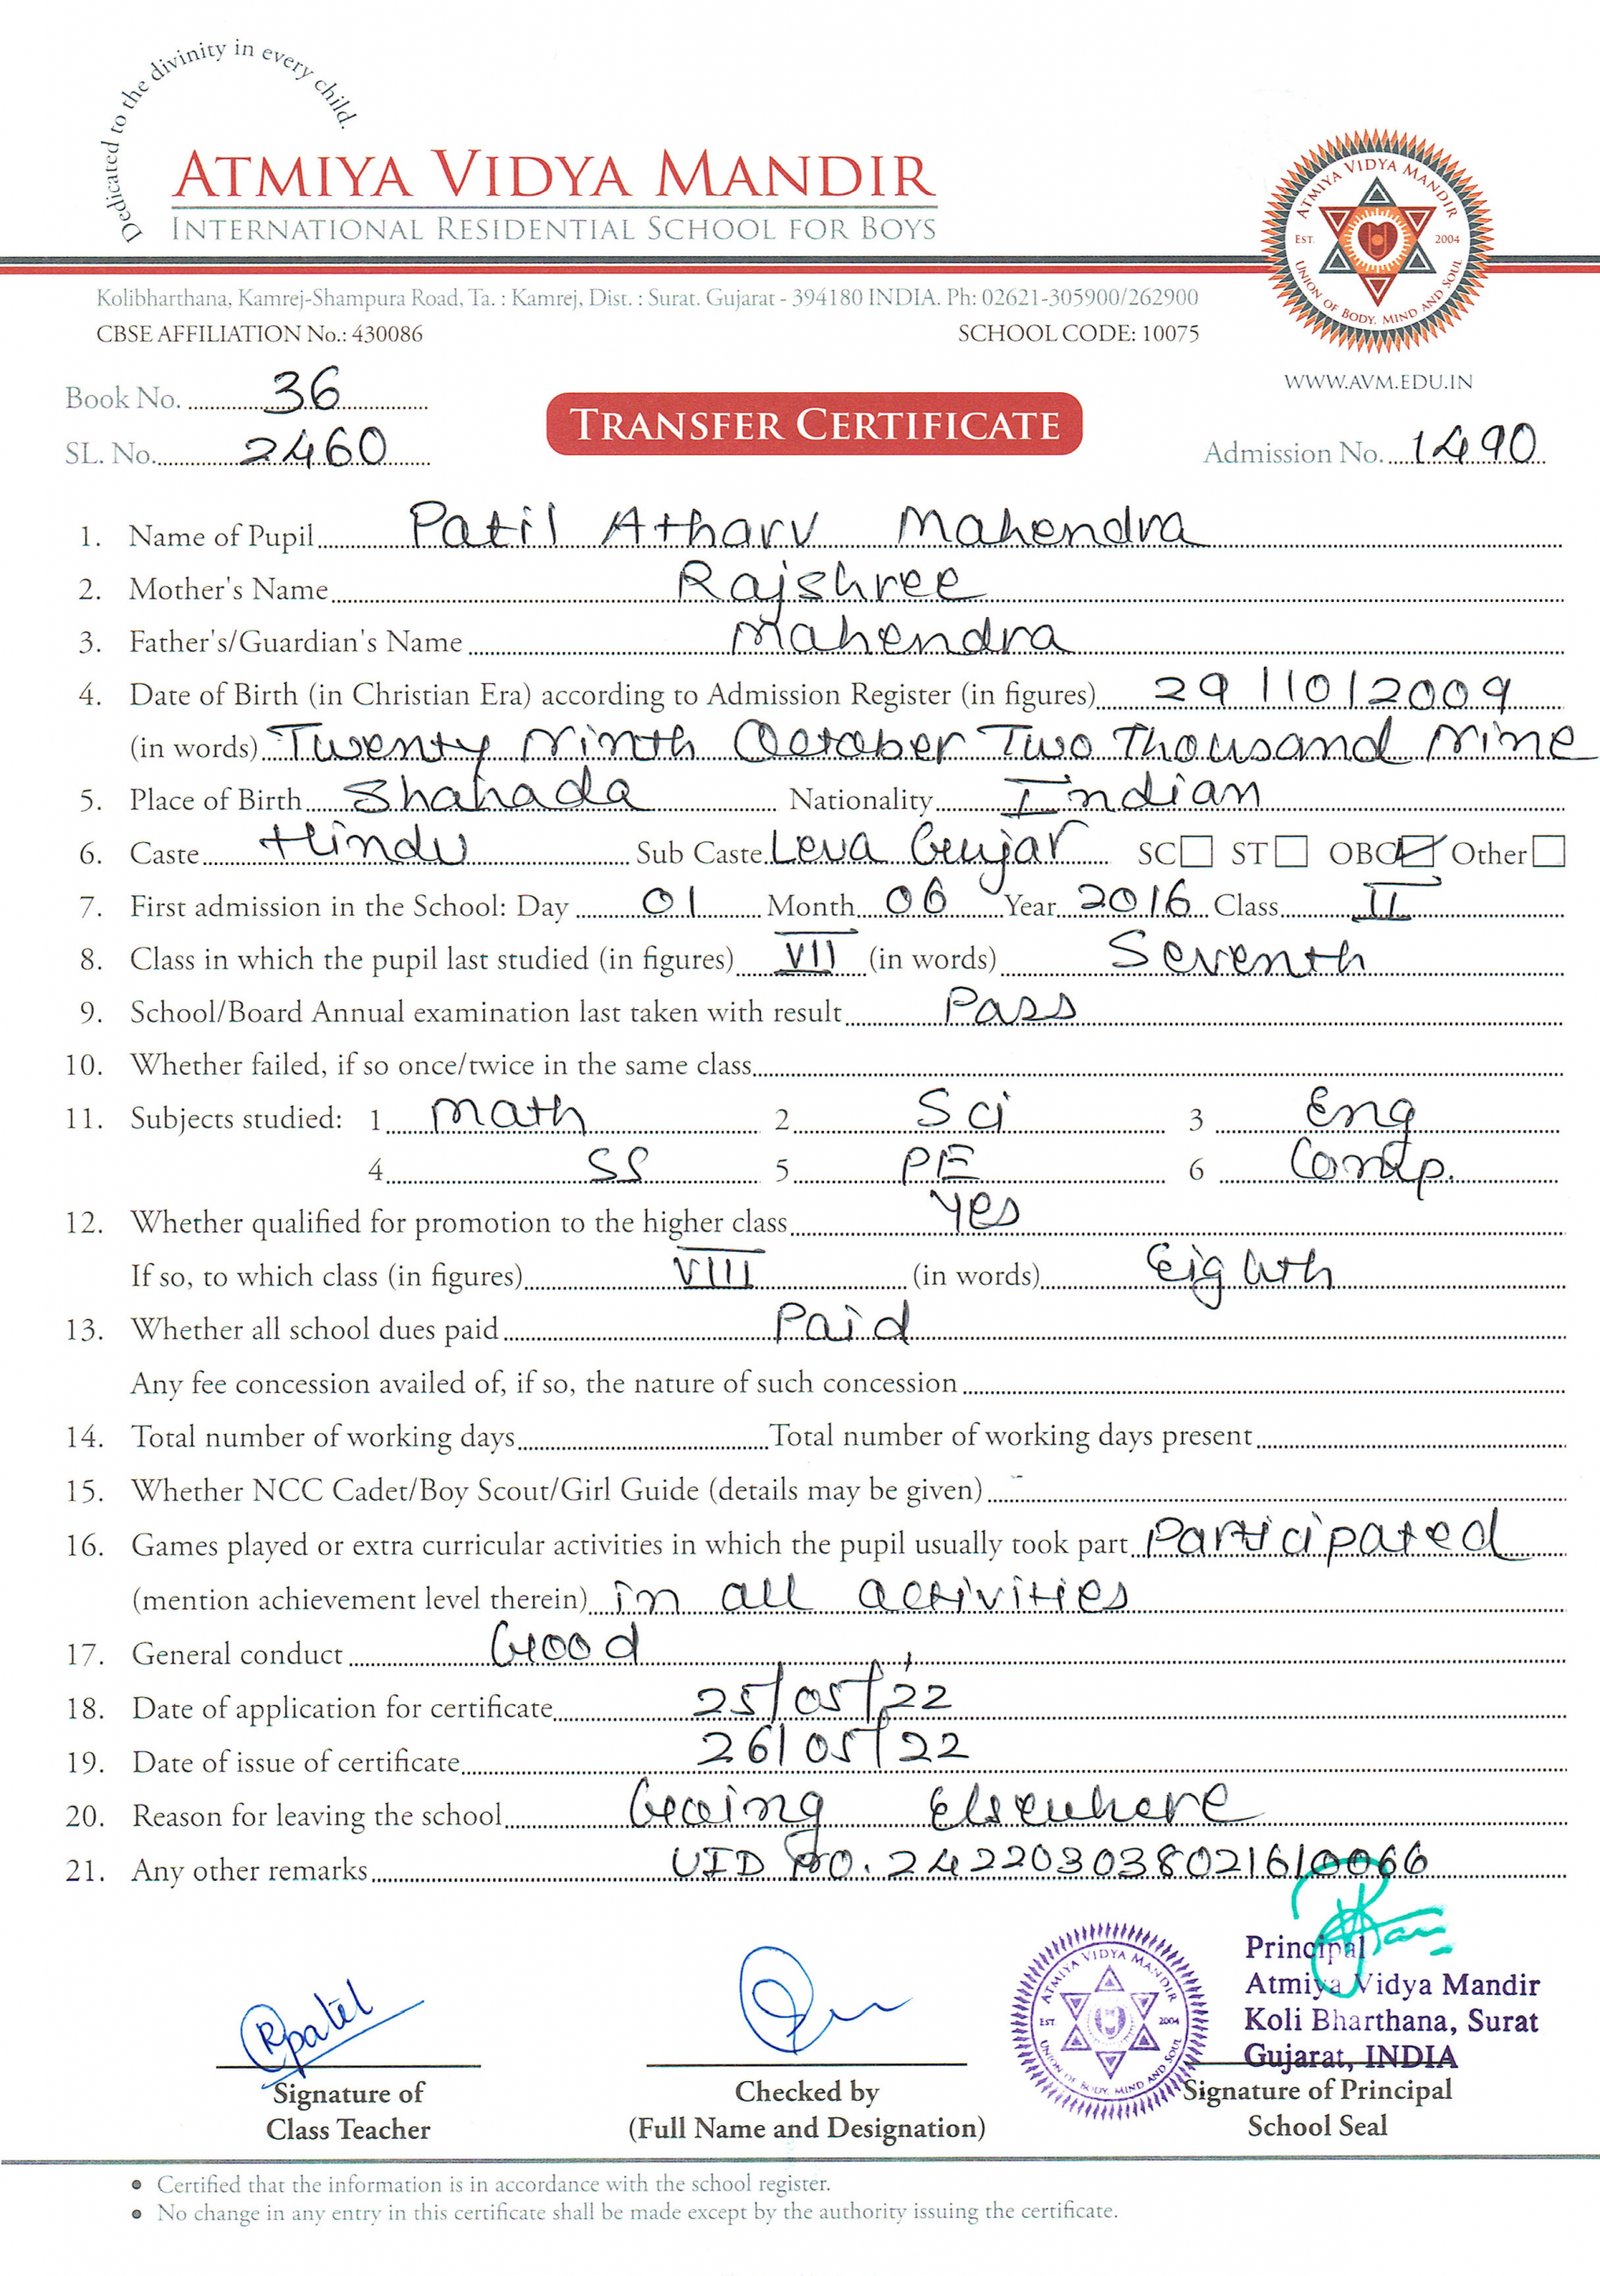 Dedicated to the divinity in every child.
ATMIYA VIDYA MANDIR
INTERNATIONAL RESIDENTIAL SCHOOL FOR BOYS
ATMIYA VIDYA MANDIR
EST. 2004
UNION OF BODY, MIND AND SOUL
Kolibharthana, Kamrej-Shampura Road, Ta. : Kamrej, Dist. : Surat. Gujarat - 394180 INDIA. Ph: 02621-305900/262900
CBSE AFFILIATION No.: 430086 SCHOOL CODE: 10075
WWW.AVM.EDU.IN
Book No. 36
TRANSFER CERTIFICATE
SL. No. 2460 Admission No. 1490
1. Name of Pupil Patil Atharv Mahendra
2. Mother's Name Rajshree
3. Father's/Guardian's Name Mahendra
4. Date of Birth (in Christian Era) according to Admission Register (in figures) 29/10/2009
(in words) Twenty Ninth October Two Thousand Nine
5. Place of Birth Shahada Nationality Indian
6. Caste Hindu Sub Caste Leva Gujar SC ST OBC Other
7. First admission in the School: Day 01 Month 06 Year 2016 Class II
8. Class in which the pupil last studied (in figures) VII (in words) Seventh
9. School/Board Annual examination last taken with result Pass
10. Whether failed, if so once/twice in the same class
11. Subjects studied: 1 Math 2 Sci 3 Eng
4 SS 5 PE 6 Comp.
12. Whether qualified for promotion to the higher class Yes
If so, to which class (in figures) VIII (in words) Eighth
13. Whether all school dues paid Paid
Any fee concession availed of, if so, the nature of such concession
14. Total number of working days Total number of working days present
15. Whether NCC Cadet/Boy Scout/Girl Guide (details may be given)
16. Games played or extra curricular activities in which the pupil usually took part Participated
(mention achievement level therein) in all activities
17. General conduct Good
18. Date of application for certificate 25/05/22
19. Date of issue of certificate 26/05/22
20. Reason for leaving the school Going Elsewhere
21. Any other remarks UID NO. 242203038021610066
Principal
Atmiya Vidya Mandir
Koli Bharthana, Surat
Gujarat, INDIA
ATMIYA VIDYA MANDIR
EST. 2004
UNION OF BODY, MIND AND SOUL
Rpatel
Signature of Class Teacher
Checked by (Full Name and Designation)
Signature of Principal School Seal
Certified that the information is in accordance with the school register.
No change in any entry in this certificate shall be made except by the authority issuing the certificate.